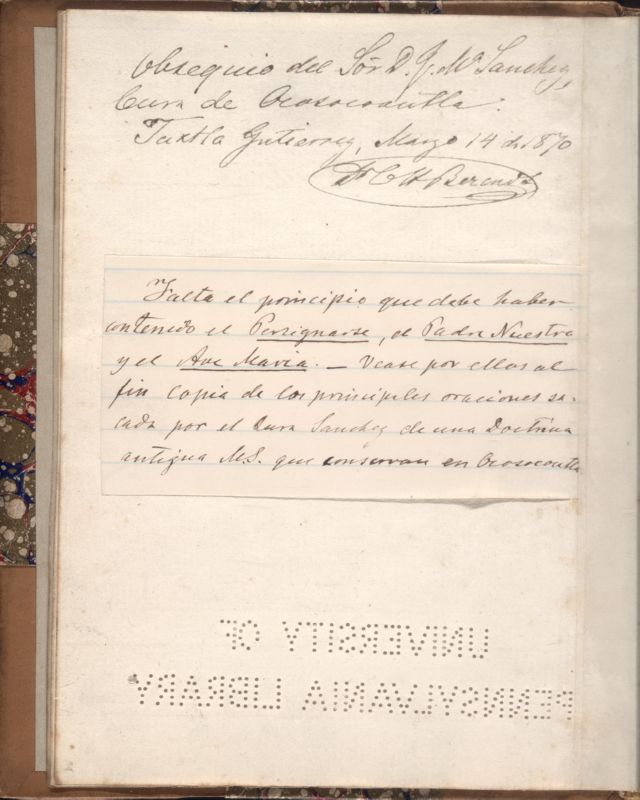 Obsequio del Sõr D. J. Mª Sanchez,
Cura de Ocosocoautla.
Tuxtla Gutierrez, Marzo 14 de 1870
Dr C H Berendt
Falta el principio que debe haber
contenido el Persignarse, el Padre Nuestro
y el Ave Maria. — Vease por ellos al
fin copia de los principales oraciones sa-
cada por el Cura Sanchez de una Doctrina
antigua M.S. que conservan en Ocosocoautla
UNIVERSITY OF
PENNSYLVANIA LIBRARY